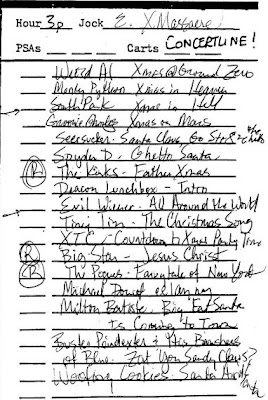 Hour 3p Jock E. XMassacre
PSAs Carts CONCERTLINE!
Weird Al Xmas@Ground Zero
Monty Python Xmas in Heaven
South Park Xmas in Hell
Xmas on Mars
Seersucker - Santa Claus Go St8 2 the Ghetto
Spyder D - Ghetto Santa
R The Kinks - Father Xmas
Deacon Lunchbox - Intro
Evil Wiener - All Around the World
Tiny Tim - The Christmas Song
XTC - Countdown to Xmas Party Time
R Big Star - Jesus Christ
R The Pogues - Fairytale of New York
Michael
Milton Batiste - Big Fat Santa
Is Coming to Town
Buster Poindexter & His Banshees
of Blue - Zat You Santy Claus?
Woofing Cookies - Santa Ain't
Santa